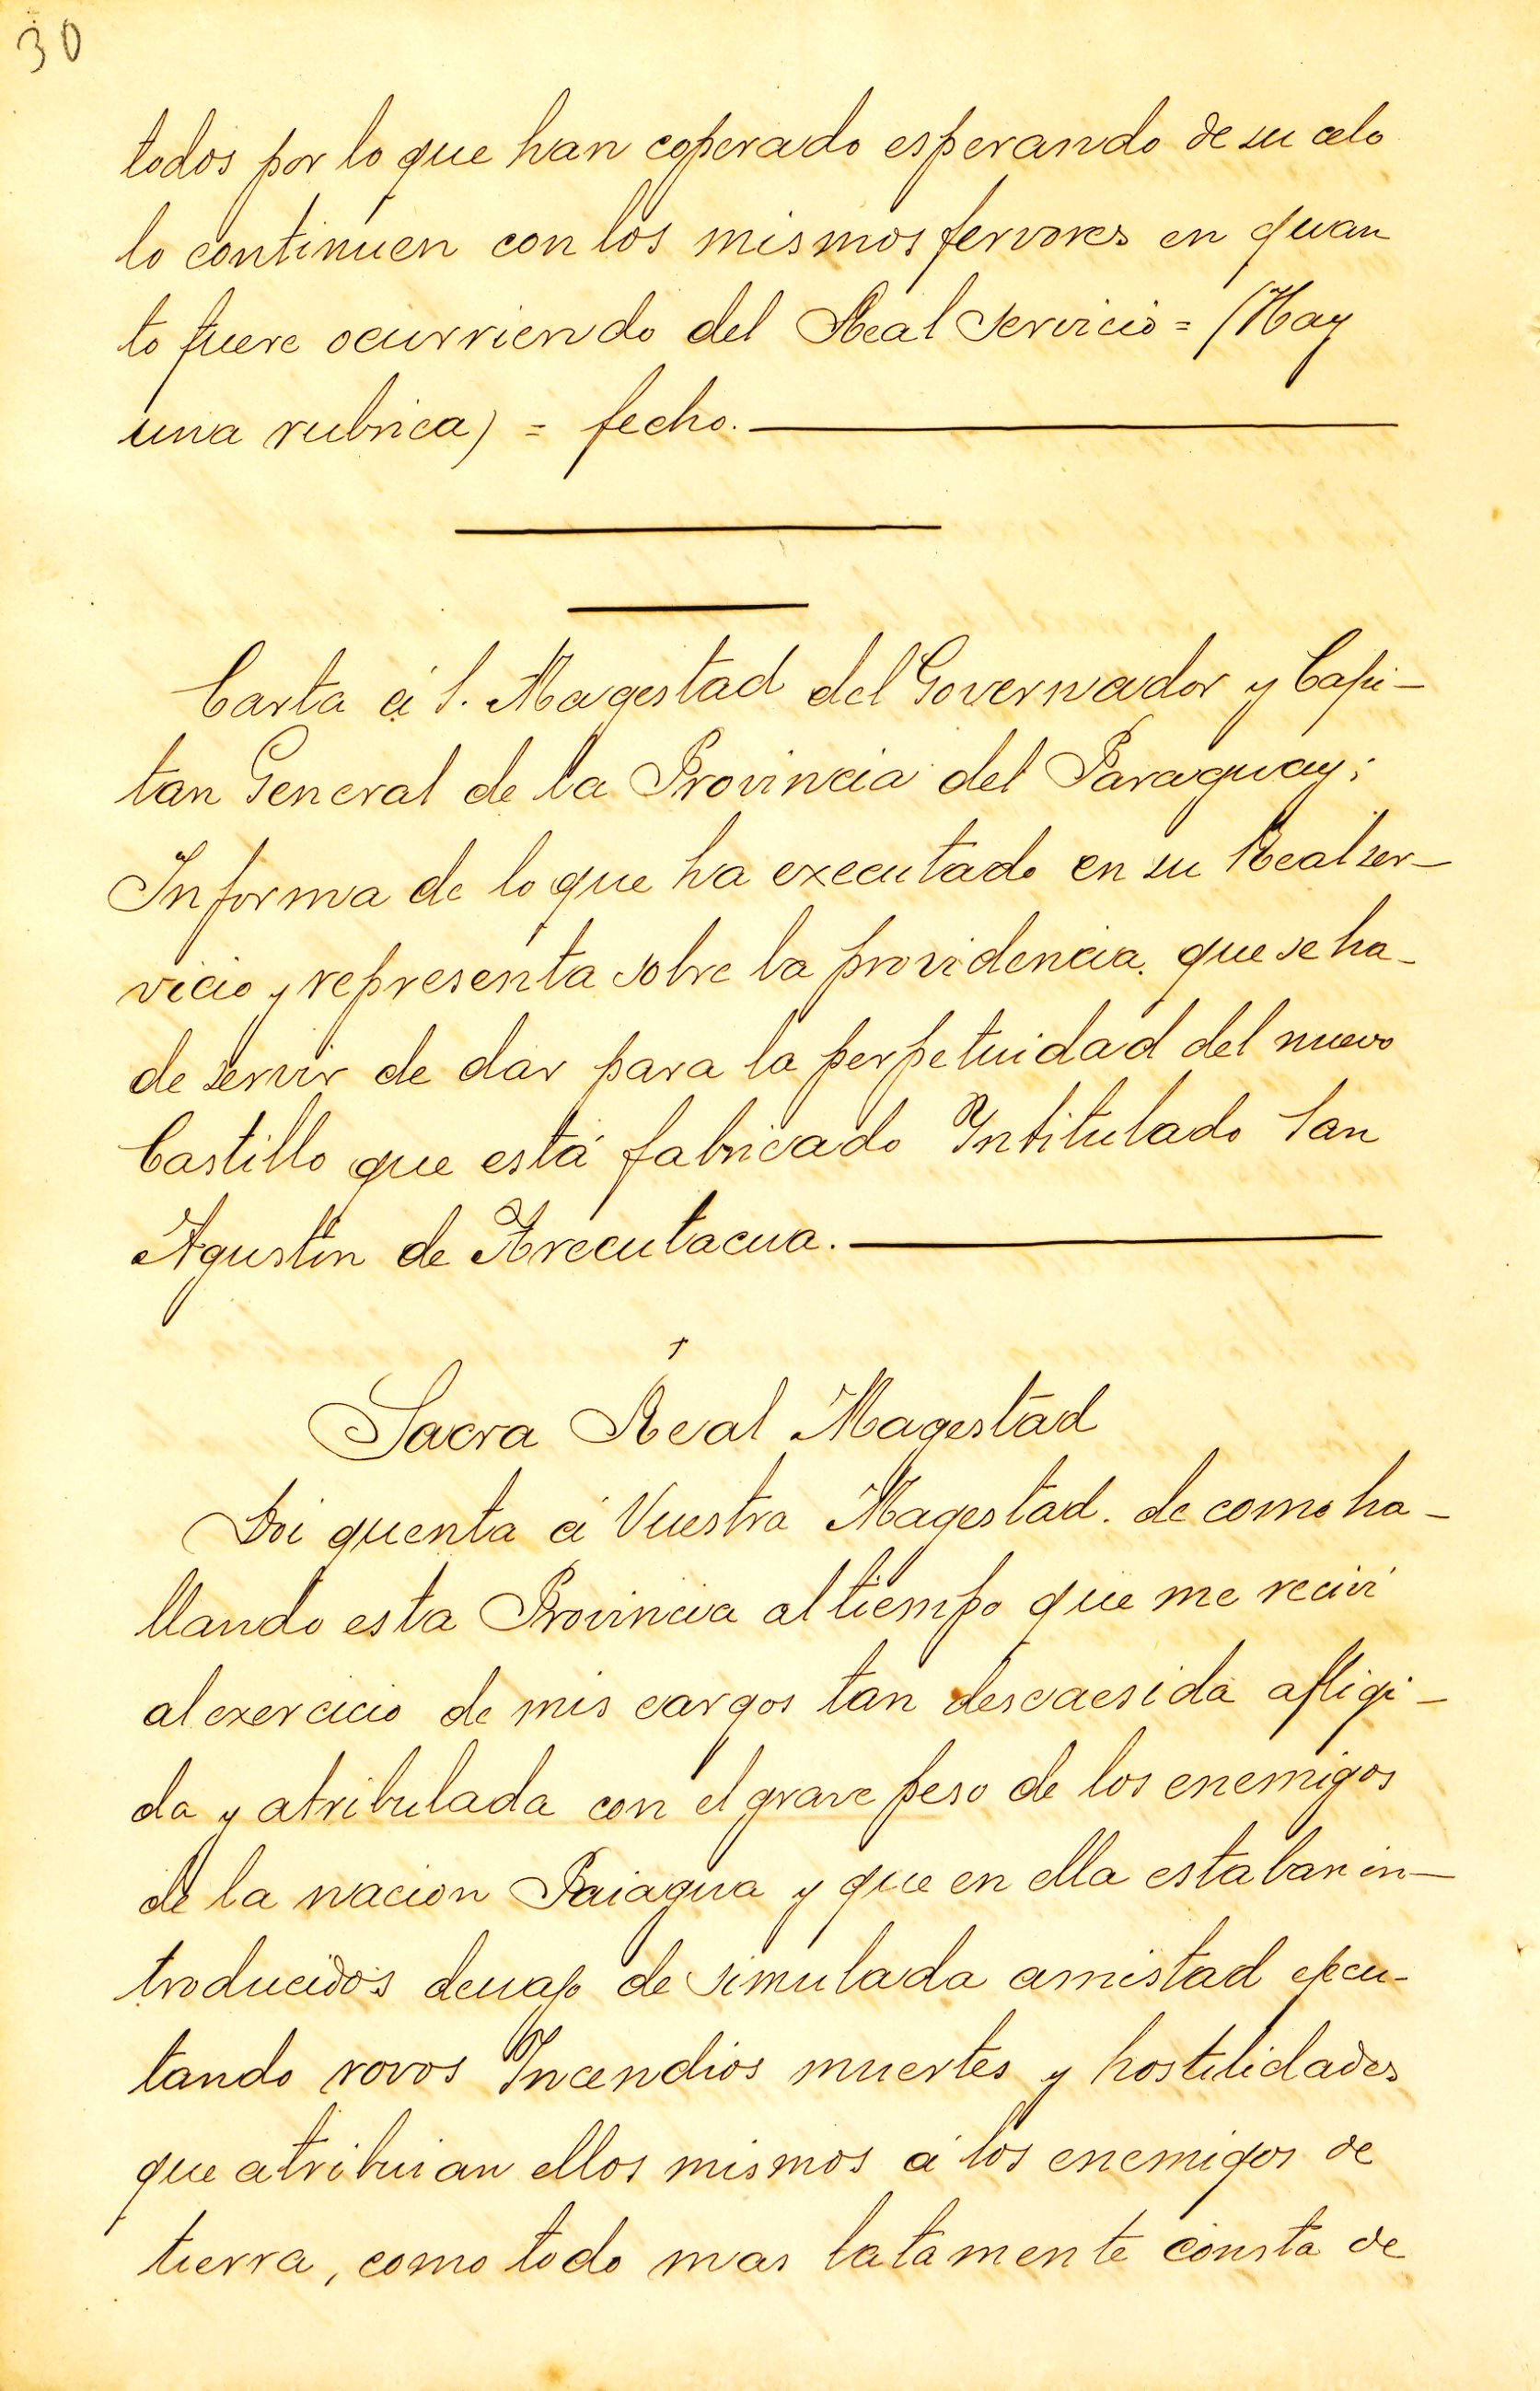 30
todos por lo que han coperado esperando de su celo
lo continuen con los mismos fervores en quan
to fuere ocurriendo del Real Servicio = (Hay
una rubrica) = fecho.
Carta á S. Magestad del Governador y Capi-
tan General de la Provincia del Paraguay;
Informa de lo que ha executado en su Real ser-
vicio y representa sobre la providencia. que se ha-
de servir de dar para la perpetuidad del nuevo
Castillo que está fabricado Intitulado San
Agustin de Arecutacua.
†
Sacra Real Magestad
Doi quenta á Vuestra Magestad. de como ha-
llando esta Provincia al tiempo que me recivi
al exercicio de mis cargos tan descaesida afligi-
da y atribulada con el grave peso de los enemigos
de la nacion Paiagua y que en ella estaban in-
troducidos de simulada amistad
tando rovos Incendios muertes y hostilidades
que atribuian ellos mismos á los enemigos de
tierra, como todo mas latamente consta de